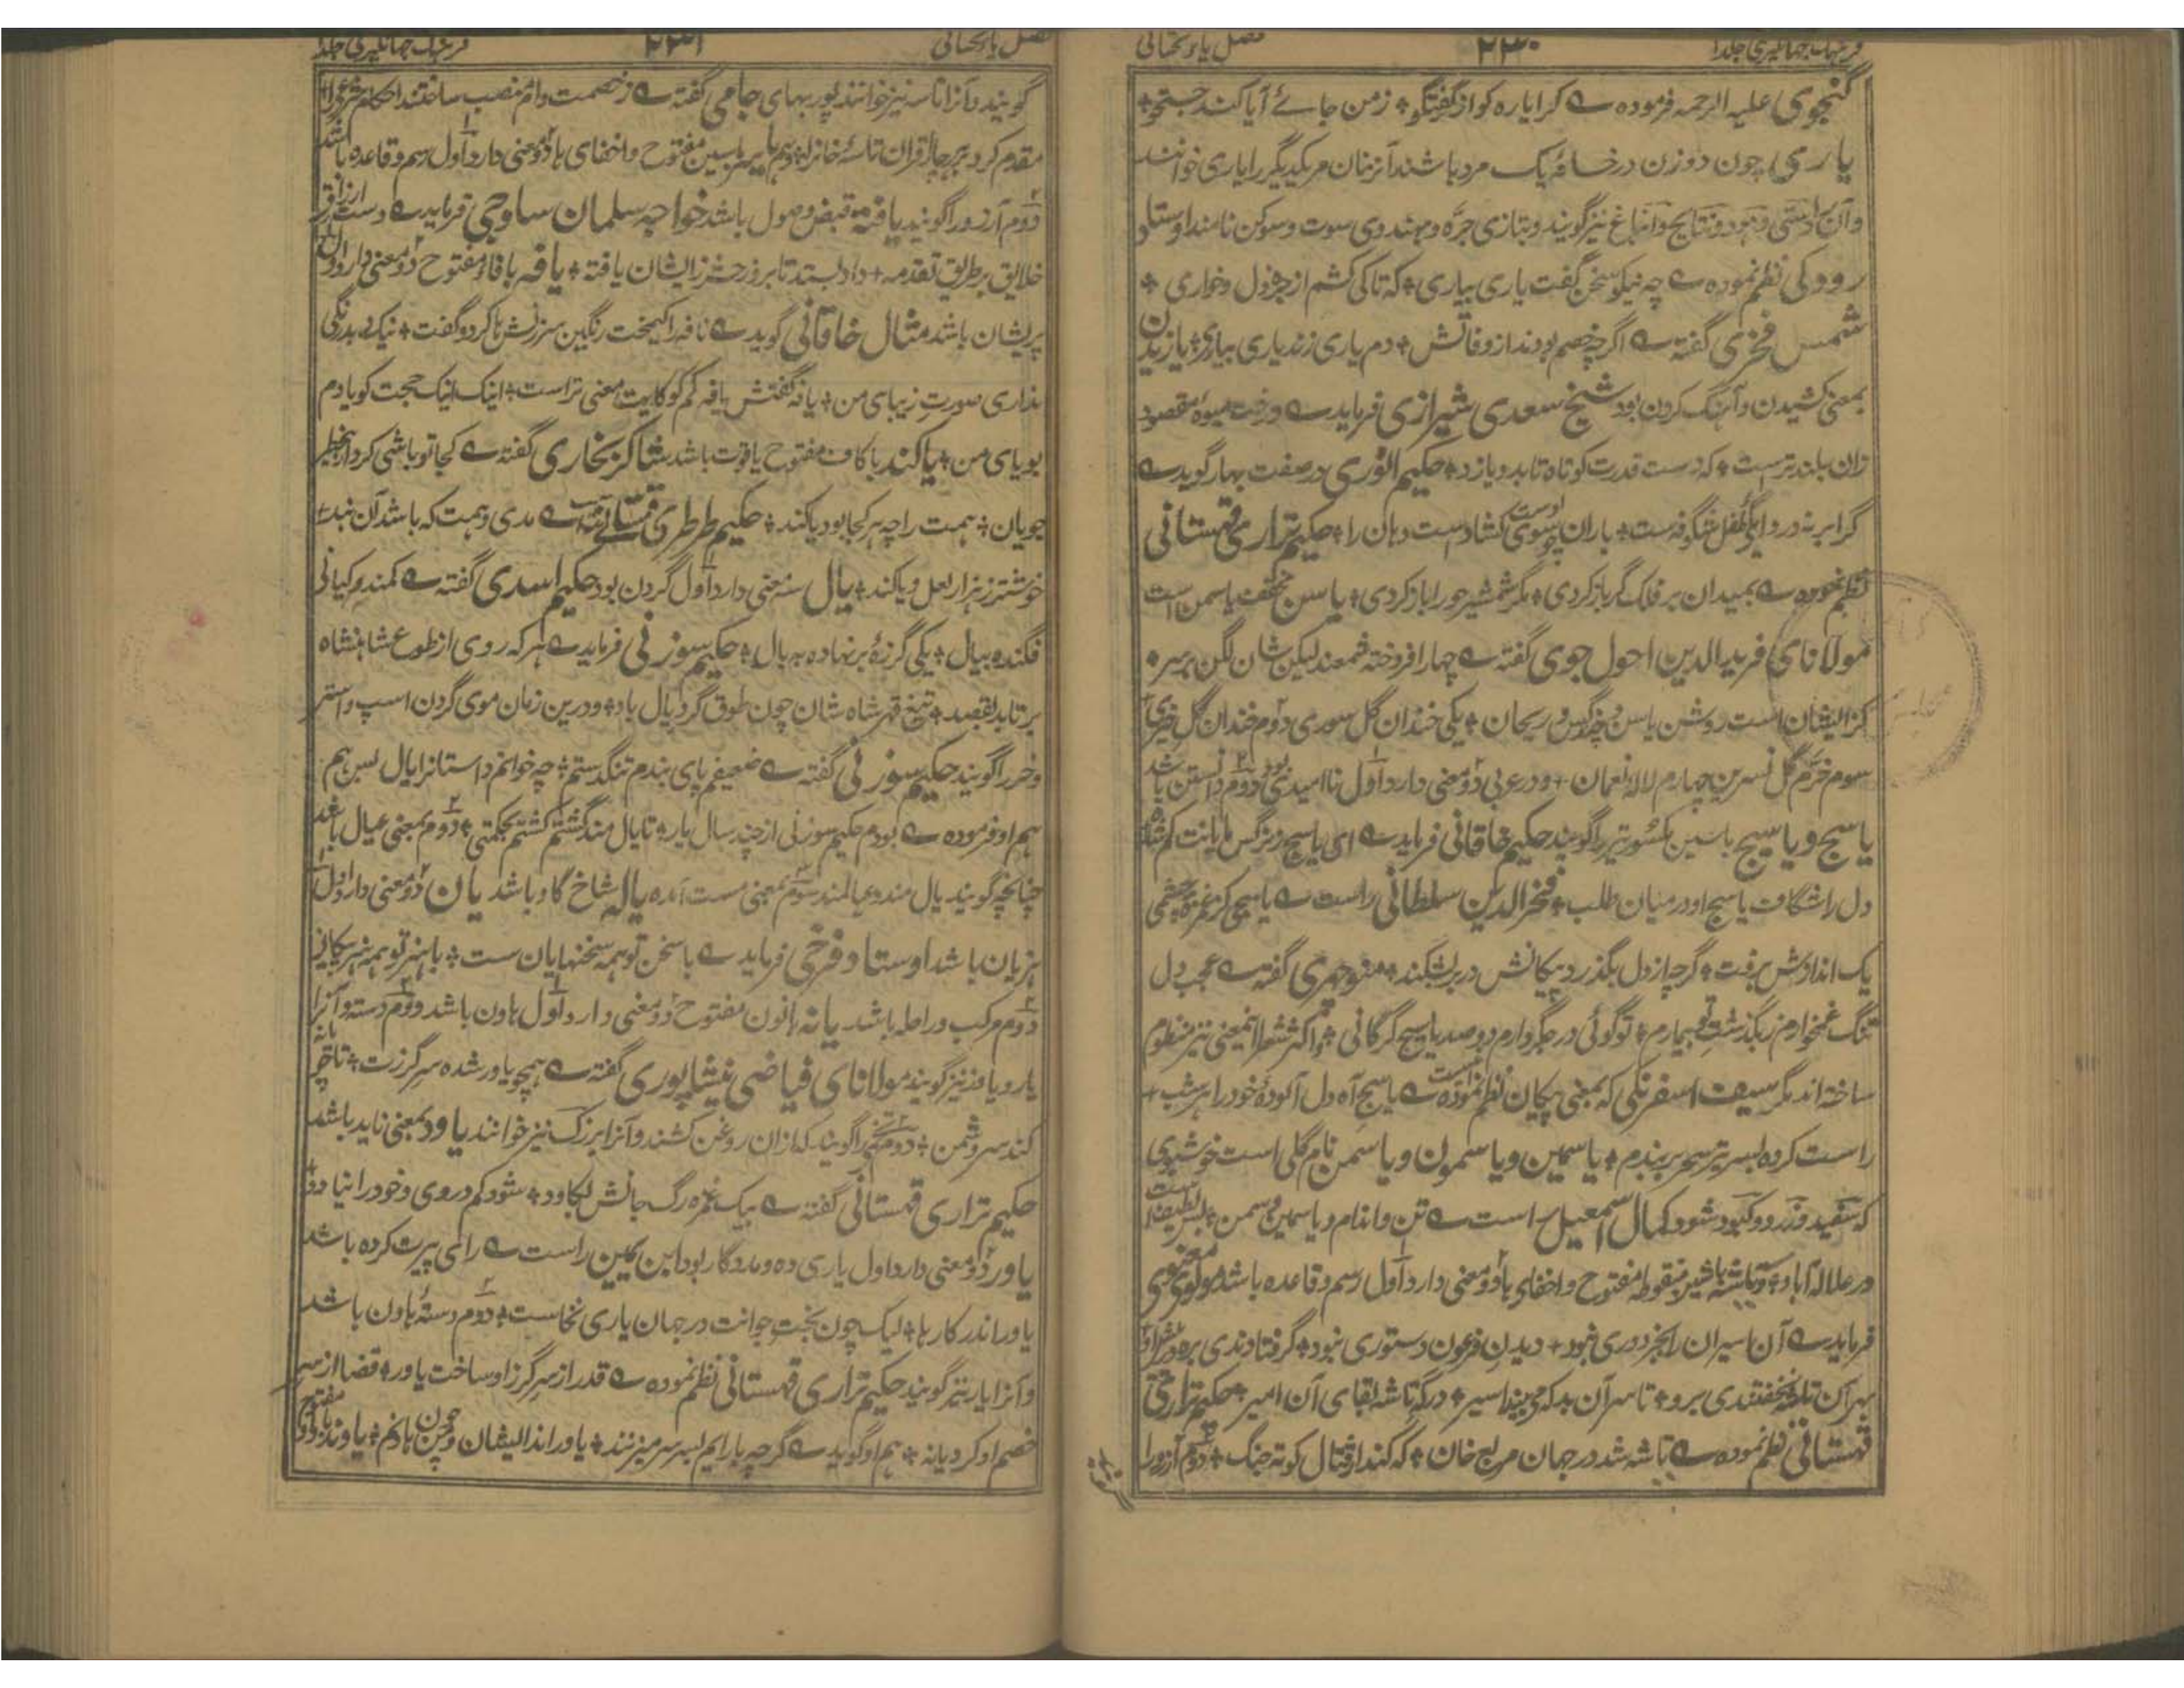 فرهنگ جهانگیری جلد ۱ ۲۳۰ فصل یاء تحتانی
گنجوی علیه الرحمه فرموده ے کرا یاره کو از گفتگو ✤ زمن جائے آیا کند جستجو ✤
یاری چون دو زن در خانۀ یک مرد باشند آنزنان مریکدیگر را یاری خوانند
وآن نیز گویند و بتازی جرّه و بهندوی سوت و سوکن نامند اوستاد
رودکی نظم نموده ے چه نیکو سخن گفت یاری بیاری ✤ که تا کی کشم از خواری ✤
شمس فخری گفته ے اگر خصم بودند از وفاتش ✤ دم یاری زند یاری بیاری ✤ یازیدن
بمعنی کشیدن و آهنگ کردن بود شیخ سعدی شیرازی فرماید ے درخت میوۀ مقصود
زان بلندتر است ✤ که دست قدرت کوتاه تا بدو یازد ✤ حکیم انوری در صفت بهار گوید ے
گر ابر نه در دایگی طفل شگوفه است ✤ یازان سوی ابر از چه گشادست دهان را ✤ حکیم نزاری قهستانی
نظم نموده ے بمیدان بر فلک گر یاز کردی ✤ مگر شمشیر حور ✤ یاسن مخفف یاسمن است
مولانای فرید الدین احول جوی گفته ے چهار افروخته شمعند لیکن شان لگن بر سر ✤
کز ایشان است روشن یاسن و نرگس و ریحان ✤ یکی خندان گل سوری دوم خندان گل خیری
سوم خرم گل نسرین چهارم لالۀ نعمان ✤ و در عربی دو معنی دارد اول ناامیدی بود دوم دانستن باشد
یاسج و یاسیج باسین مکسور تیر را گویند حکیم خاقانی فرماید ے ای یاسج
دل را شگافت یاسج او در میان طلب ✤ فخر الدین سلطانی راست ے یاسیجی کز غمزۀ چشمی
یک انداوش برفت ✤ گرچه از دل بگذرد پیکانش در بر بشکند ✤ منوچهری گفته ے عجب دل
تنگ غمخوارم ز بگذشت ✤ تو گوئی در جگر دارم دو صد یاسیج گرگانی ✤ و اکثر شعرا اینمعنی نیز منظوم
ساخته اند مگر سیف اسفرنگی که بمعنی پیکان نظم نموده ے یاسج آه دل آلودۀ خود را هر شب ✤
راست کرده بسر تیر سحر بربندم ✤ یاسمین و یاسمون و یاسمن نام گلی است خوشبوی
که سفید و زرد و کبود شود کمال اسمعیل راست ے تن و اندام و یاسمین و سمن ✤ بس لطیف است
یاسه باشین منقوطۀ مفتوح و اخفای ها دو معنی دارد اول رسم و قاعده باشد مولوی معنوی
فرماید ے آن اسیران را بجز دوری نبود ✤ دیدن فرعون دستوری نبود ✤ گر فتادندی بره در پیش او
بهر آن یاسه بخفتندی برو ✤ تا سر آن بد که می بیند اسیر ✤ درگه یاسه لقای آن امیر ✤ حکیم نزاری
قهستانی نظم نموده ے یاسه شد در جهان مربع خان ✤ که کند قتال کوته جنگ ✤ دوم آرزو را
فصل یاء تحتانی ۲۳۱ فرهنگ جهانگیری جلد ۱
گویند و آنرا تاسه نیز خوانند پور بهای جامی گفته ے
مقدم کرد بر یاسین مفتوح و اخفای ها دو معنی دارد اول رسم و قاعده باشد
دوم آرزو را گویند یافته قبض وصول باشد خواجه سلمان ساوجی فرماید ے دست ارزاق
خلایق بر طریق تقدمه ✤ داد بستد تا بروز حشر زایشان یافته ✤ یافه با فاء مفتوح دو معنی دارد اول
پریشان باشد مثال خاقانی گوید ے نافه را کیمخت رنگین سرزنش ها کرد و گفت ✤ نیک بدرنگی
نداری صورت زیبای من ✤ یافه گفتش یافه کم گو کایت معنی تراست ✤ اینک اینک حجت گویا دم
بویای من ✤ یاکند با کاف مفتوح یاقوت باشد شاکر بخاری گفته ے کجا تو باشی گردد بیخطر
خوبان ✤ جمست را چه خطر هرکجا بود یاکند ✤ حکیم طرطری
خوشتر ز هزار لعل و یاکند ✤ یال سه معنی دارد اول گردن بود حکیم اسدی گفته ے کمند کیانی
فگنده بیال ✤ یکی گرزۀ برنهاده به یال ✤ حکیم سوزنی فرماید ے هر که روی از طوع شاهنشاه
برتابد بقصد ✤ تیغ قهر شاه شان چون طوق گرد یال باد ✤ و درین زمان موی گردن اسپ و استر
و خر را گویند حکیم سوزنی گفته ے ضعیفم پای بندم تنگدستم ✤ چه خوانم داستان زایال بس هم
هم او فرموده ے بودم حکیم سوزنی از چند سال باز ✤ تا یال مند گشتم ✤ دوم بمعنی عیال باشد
چنانچه گویند یال مند و عیالمند سوم بمعنی مست آمده یاله شاخ گاو باشد یان دو معنی دارد اول
هزیان باشد اوستاد فرخی فرماید ے با سخن تو همه سخنها یان ست ✤ با هنر تو همه هنرها
دوم مرکب و راحله باشد یانه بانون مفتوح دو معنی دارد اول هاون باشد و دوم دسته و آنرا
یار و یاور نیز گویند مولانای فیاضی نیشاپوری گفته ے همچو یاور شده سر گرزت ✤ تا چو یانه
کند سر دشمن ✤ دوم تخمی را گویند که ازان روغن کشند و آنرا بزرک نیز خوانند یاود بمعنی ناید باشد
حکیم نزاری قهستانی گفته ے بیک غمزه رگ جانش بکاود ✤ شود گم در وی و خود را نیاود ✤
یاور دو معنی دارد اول یاری ده و مددگار بود ابن یمین راست ے رای پیرت کرده باشد
یاور اندر کارها ✤ لیک چون بخت جوانت در جهان یاری نخاست ✤ دوم دستۀ هاون باشد
و آنرا یار نیز گویند حکیم نزاری قهستانی نظم نموده ے قدر از سر گرز او ساخت یاور ✤ قضا از سر
خصم او کرد یانه ✤ هم او گوید ے گرچه یارانم بسر سر میزنند ✤ یاور اند ایشان و من چون هاونم ✤ یاوند با واو مفتوح